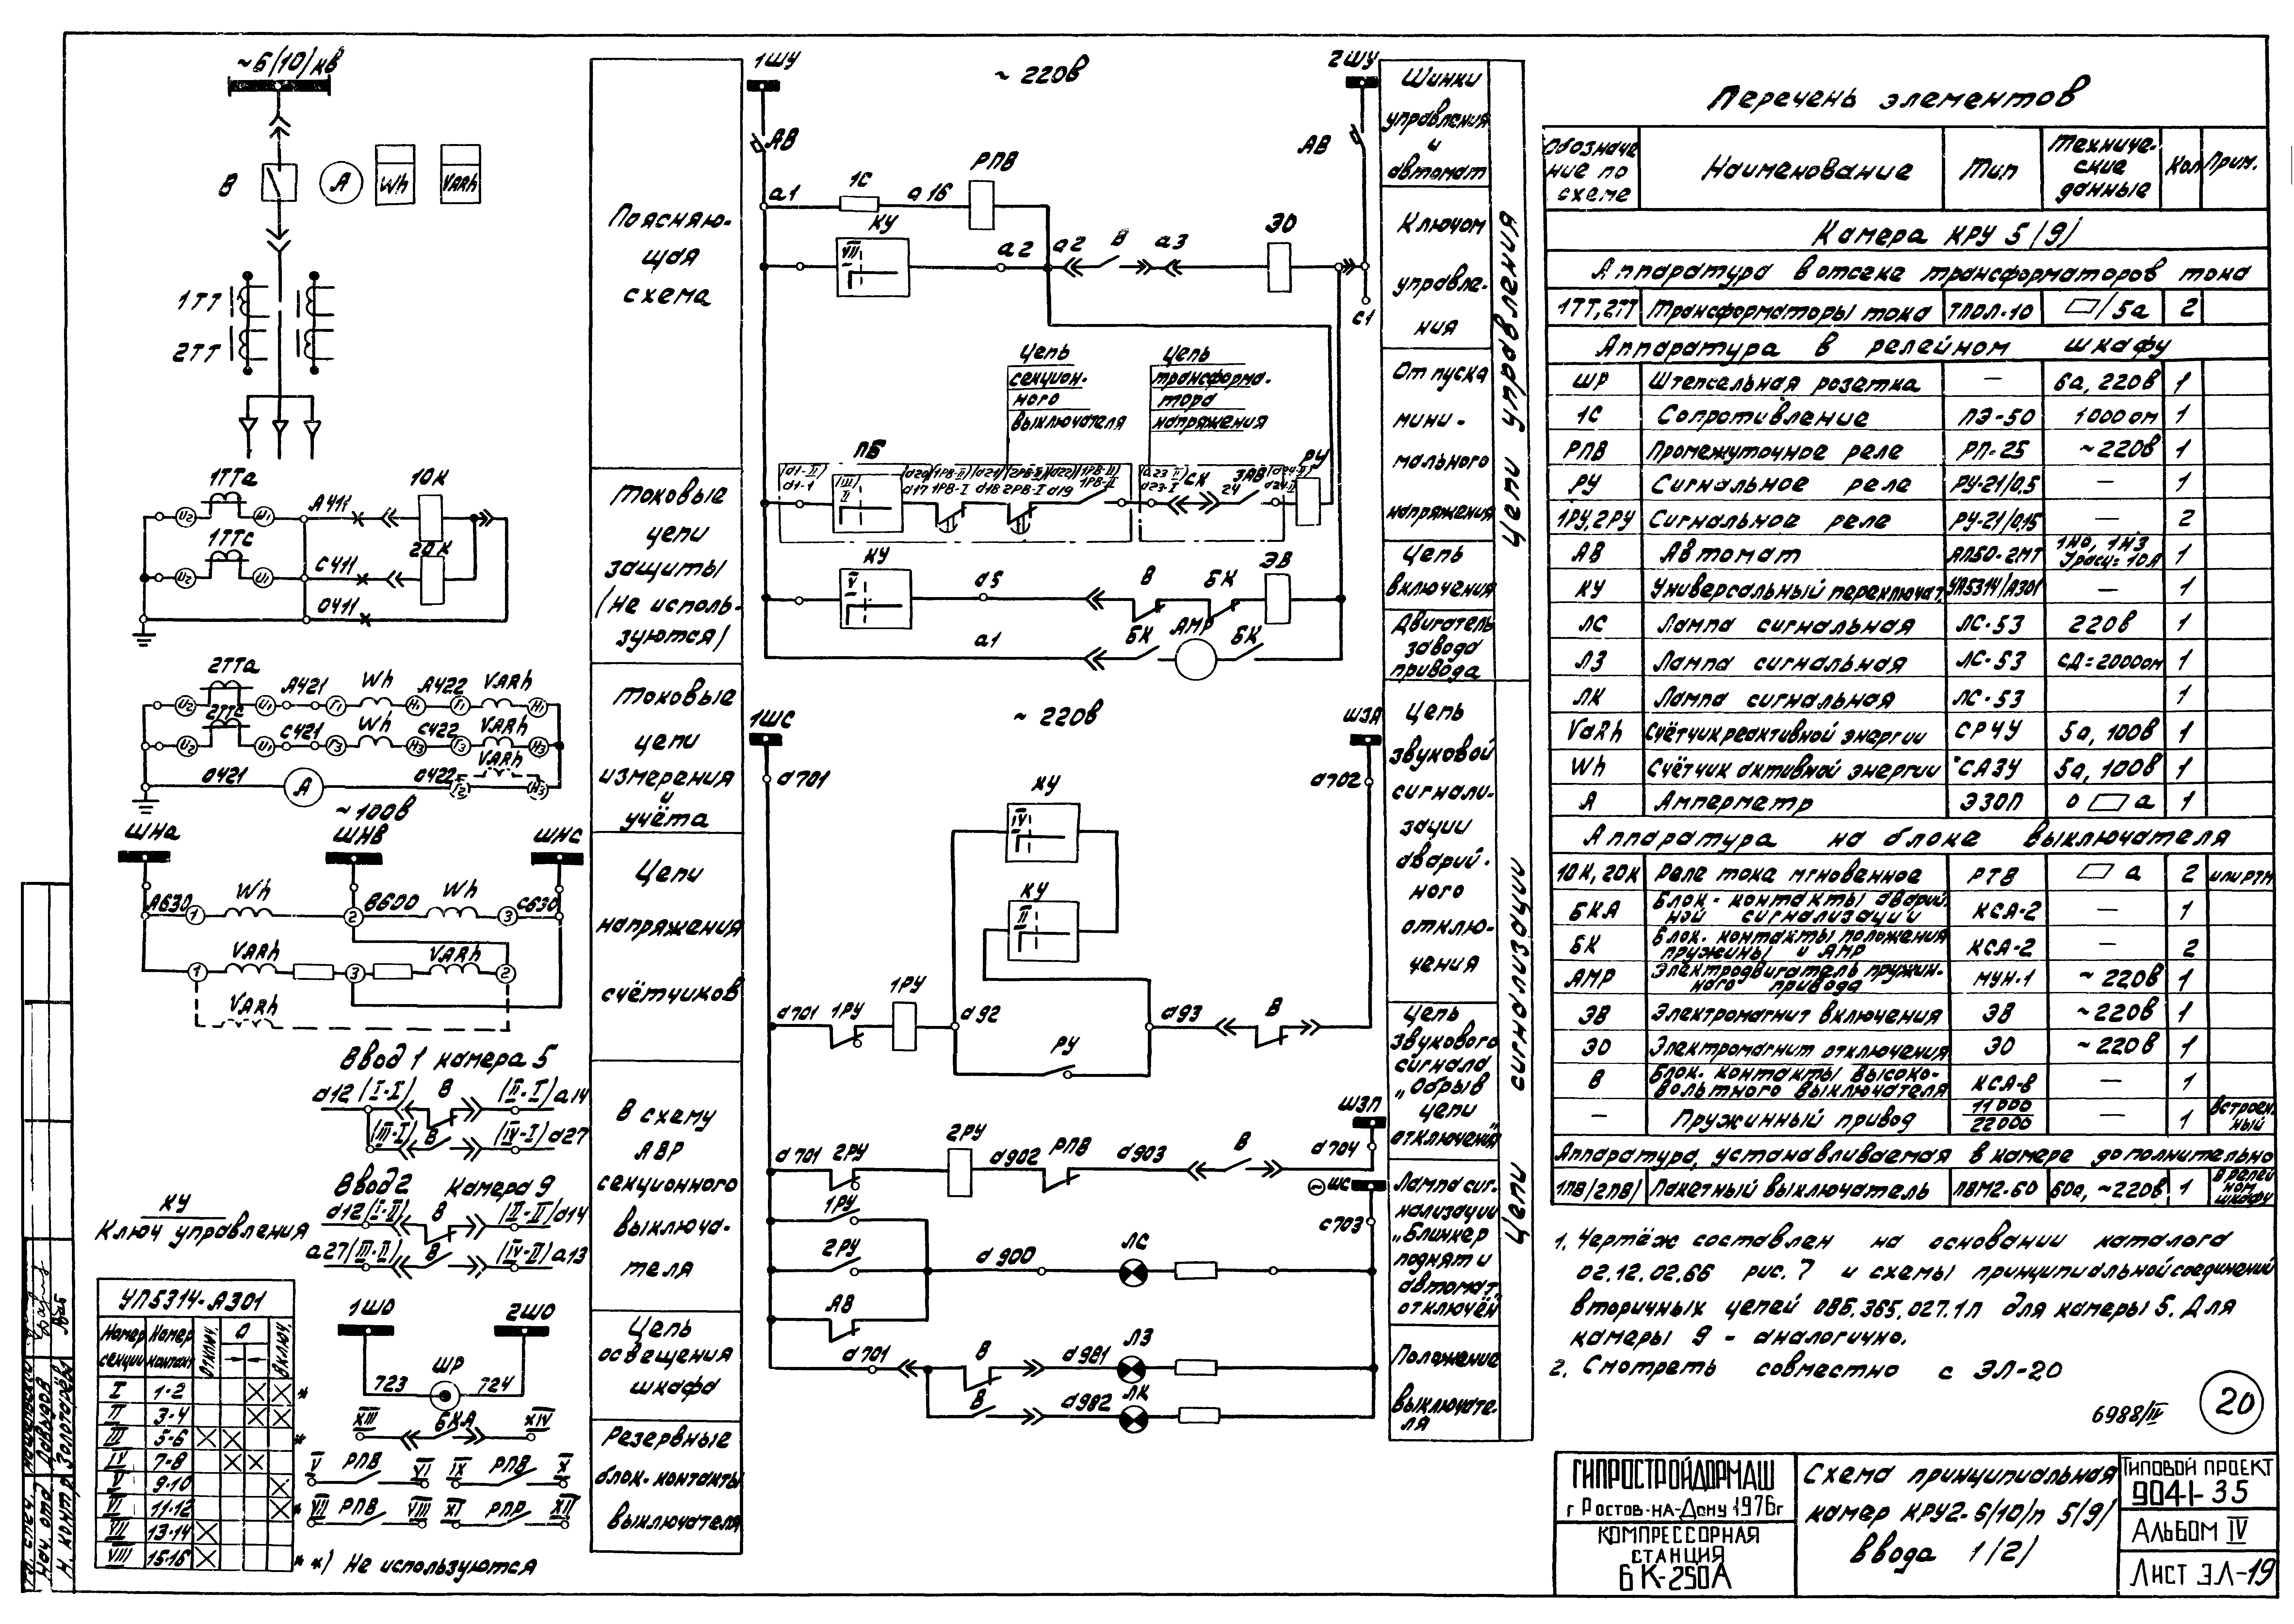 ~6/10/кв
В
А
Wh
VARh
1ТТ
2ТТ
1ТТа
10К
А411
1ТТс
20К
С411
О411
2ТТа
А421
Wh
А422
VARh
2ТТс
С421
Wh
С422
VARh
О421
А
О422
VARh
~100в
ШНа
ШНв
ШНс
А630
Wh
В600
Wh
С630
VARh
VARh
VARh
Ввод 1 камера 5
d12 (I-I) В (II-I) a14
(III-I) В (IV-I) d27
Ввод 2 камера 9
d12 (I-II) В (II-II) d14
a27 (III-II) В (IV-II) a13
КУ
Ключ управления
УП5314-А301
Номер секции
Номер контакт
Отключ.
О
Включ.
I 1-2 *
II 3-4
III 5-6 *
IV 7-8
V 9-10
VI 11-12 *
VII 13-14
VIII 15-16 *
*) Не используются
1ШО
2ШО
ШР
723
724
XIII БКА XIV
V РПВ VI
IX РПВ X
VII РПВ VIII
XI РПР XII
Поясняю-
щая
схема
токовые
цепи
защиты
/не исполь-
зуются/
токовые
цепи
измерения
и
учёта
Цепи
напряжения
счётчиков
В схему
АВР
секционного
выключа-
теля
Цепь
освещения
шкафа
Резервные
блок-контакты
выключателя
1ШУ
~ 220в
2ШУ
АВ
АВ
РПВ
a1
1С
a16
КУ
VII
a2
a2
В
a3
ЭО
С1
Цепь
секцион-
ного
выключателя
Цепь
трансформа-
тора
напряжения
ПБ
РУ
d1-1
d17
1РВ-I
d18
2РВ-I
d19
1РВ-II
d23-I
СК
24
ЗАВ
КУ
V
d5
В
БК
ЭВ
a1
БК
АМР
БК
1ШС
~ 220в
ШЗА
d701
d702
КУ
IV
КУ
II
d701
1РУ
1РУ
d92
РУ
d93
В
ШЗП
d701
2РУ
2РУ
d902
РПВ
d903
В
d704
ШС
1РУ
С703
2РУ
d900
ЛС
АВ
d701
В
d981
ЛЗ
В
d982
ЛК
Шинки
управления
и
автомат
Ключом
управле-
ния
От пуска
мини-
мального
напряжения
Цепь
включения
Двигатель
завода
привода
Цепи управления
Цепь
звуковой
сигнали-
зации
аварий-
ного
отклю-
чения
Цепь
звукового
сигнала
„Обрыв
цепи
отключения"
Лампа сиг-
нализации
„Блинкер
поднят и
автомат
отключён"
Положение
выключате-
ля
Цепи сигнализации
Перечень элементов
Обозначе
ние по
схеме
Наименование
Тип
Техниче-
ские
данные
Кол
Прим.
Камера КРУ 5/9/
Аппаратура в отсеке трансформаторов тока
1ТТ, 2ТТ Трансформаторы тока ТПОЛ-10 /5а 2
Аппаратура в релейном шкафу
ШР Штепсельная розетка — 6а, 220в 1
1С Сопротивление ПЭ-50 1000 ом 1
РПВ Промежуточное реле РП-25 ~220в 1
РУ Сигнальное реле РУ-21/0,5 — 1
1РУ, 2РУ Сигнальное реле РУ-21/0,15 — 2
АВ Автомат АП50-2МТ 1НО, 1НЗ Jрасц=10А 1
КУ Универсальный переключат. УП5314/А301 — 1
ЛС Лампа сигнальная ЛС-53 220в 1
ЛЗ Лампа сигнальная ЛС-53 СД=2000ом 1
ЛК Лампа сигнальная ЛС-53 1
VaRh Счётчик реактивной энергии СР4У 5а, 100в 1
Wh Счётчик активной энергии САЗУ 5а, 100в 1
А Амперметр Э30П 0 а 1
Аппаратура на блоке выключателя
10К, 20К Реле тока мгновенное РТВ а 2 или РТМ
БКА Блок-контакты аварий-
ной сигнализации КСА-2 — 1
БК Блок-контакты положения
пружины и АМР КСА-2 — 2
АМР Электродвигатель пружин-
ного привода МУН-1 ~220в 1
ЭВ Электромагнит включения ЭВ ~220в 1
ЭО Электромагнит отключения ЭО ~220в 1
В Блок-контакты высоко-
вольтного выключателя КСА-8 — 1
— Пружинный привод 11000/22000 — 1 Встроен-
ный
Аппаратура, устанавливаемая в камере дополнительно
1ПВ/2ПВ/ Пакетный выключатель ПВМ2-60 60а, ~220в 1 В релей
ном
шкафу
1. Чертёж составлен на основании каталога
02.12.02.66 рис. 7 и схемы принципиальной соединений
вторичных цепей ОВБ.365.027.1П для камеры 5. Для
камеры 9 - аналогично.
2. Смотреть совместно с ЭЛ-20
6988/IV
20
ГИПРОСТРОЙДОРМАШ
г Ростов-на-Дону 1976г
КОМПРЕССОРНАЯ
СТАНЦИЯ
6К-250А
Схема принципиальная
камер КРУ2-6/10/п 5/9/
Ввода 1/2/
Типовой проект
904-1-35
Альбом IV
Лист ЭЛ-19